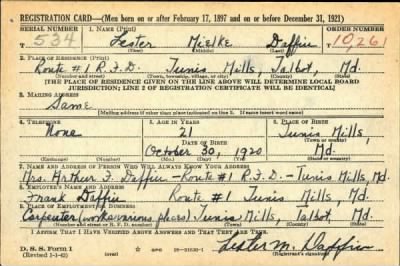 REGISTRATION CARD—(Men born on or after February 17, 1897 and on or before December 31, 1921)
SERIAL NUMBER 1. NAME (Print) ORDER NUMBER
534 Lester Mielke Daffin 10,261
(First) (Middle) (Last)
2. PLACE OF RESIDENCE (Print)
Route #1 R.F.D. Tunis Mills, Talbot, Md.
(Number and street) (Town, township, village, or city) (County) (State)
[THE PLACE OF RESIDENCE GIVEN ON THE LINE ABOVE WILL DETERMINE LOCAL BOARD
JURISDICTION; LINE 2 OF REGISTRATION CERTIFICATE WILL BE IDENTICAL]
3. MAILING ADDRESS
Same
[Mailing address if other than place indicated on line 2. If same insert word same]
4. TELEPHONE 5. AGE IN YEARS 6. PLACE OF BIRTH
None 21 Tunis Mills,
DATE OF BIRTH (Town or county)
October 30, 1920 Md.
(Exchange) (Number) (Mo.) (Day) (Yr.) (State or country)
7. NAME AND ADDRESS OF PERSON WHO WILL ALWAYS KNOW YOUR ADDRESS
Mrs. Arthur F. Daffin—Route #1 R.F.D.—Tunis Mills, Md.
8. EMPLOYER'S NAME AND ADDRESS
Frank Daffin Route #1 Tunis Mills, Md.
9. PLACE OF EMPLOYMENT OR BUSINESS
Carpenter (works various places) Tunis Mills, Talbot, Md.
(Number and street or R. F. D. number) (Town) (County) (State)
I AFFIRM THAT I HAVE VERIFIED ABOVE ANSWERS AND THAT THEY ARE TRUE.
D. S. S. Form 1
(Revised 1-1-42) (over)
Lester M. Daffin